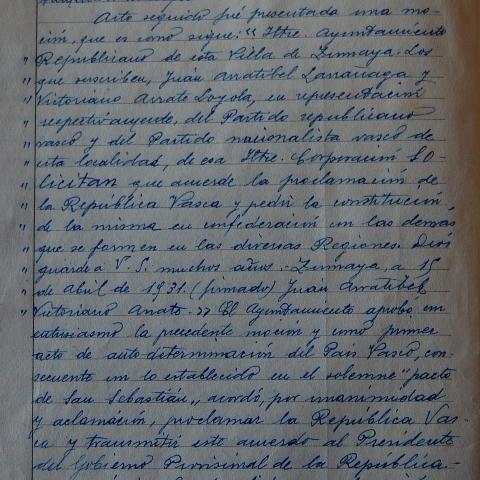 Acto seguido fué presentada una mo-
ción, que es como sigue: "Iltre. Ayuntamiento
" Republicano de esta Villa de Zumaya. Los
" que suscriben, Juan Arratibel Larrañaga y
" Victoriano Arrate Loyola, en representación
" respectivamente, del Partido republicano
" vasco y del Partido nacionalista vasco de
" esta localidad, de esa Iltre. Corporación SO-
" licitan que acuerde la proclamación de
" la República Vasca y pedir la constitución
" de la misma en confederación con las demás
" que se formen en las diversas Regiones. Dios
" guarde a V. S. muchos años.- Zumaya, a 15
" de Abril de 1931. (firmado) Juan Arratibel
" Victoriano Arrate. " El Ayuntamiento aprobó, con
entusiasmo la precedente moción y como primer
acto de auto determinación del Pais Vasco, con-
secuente con lo establecido en el solemne "pacto
de San Sebastián", acordó, por unanimidad
y aclamación, proclamar la República Vas-
ca y transmitir este acuerdo al Presidente
del Gobierno Provisional de la República.-